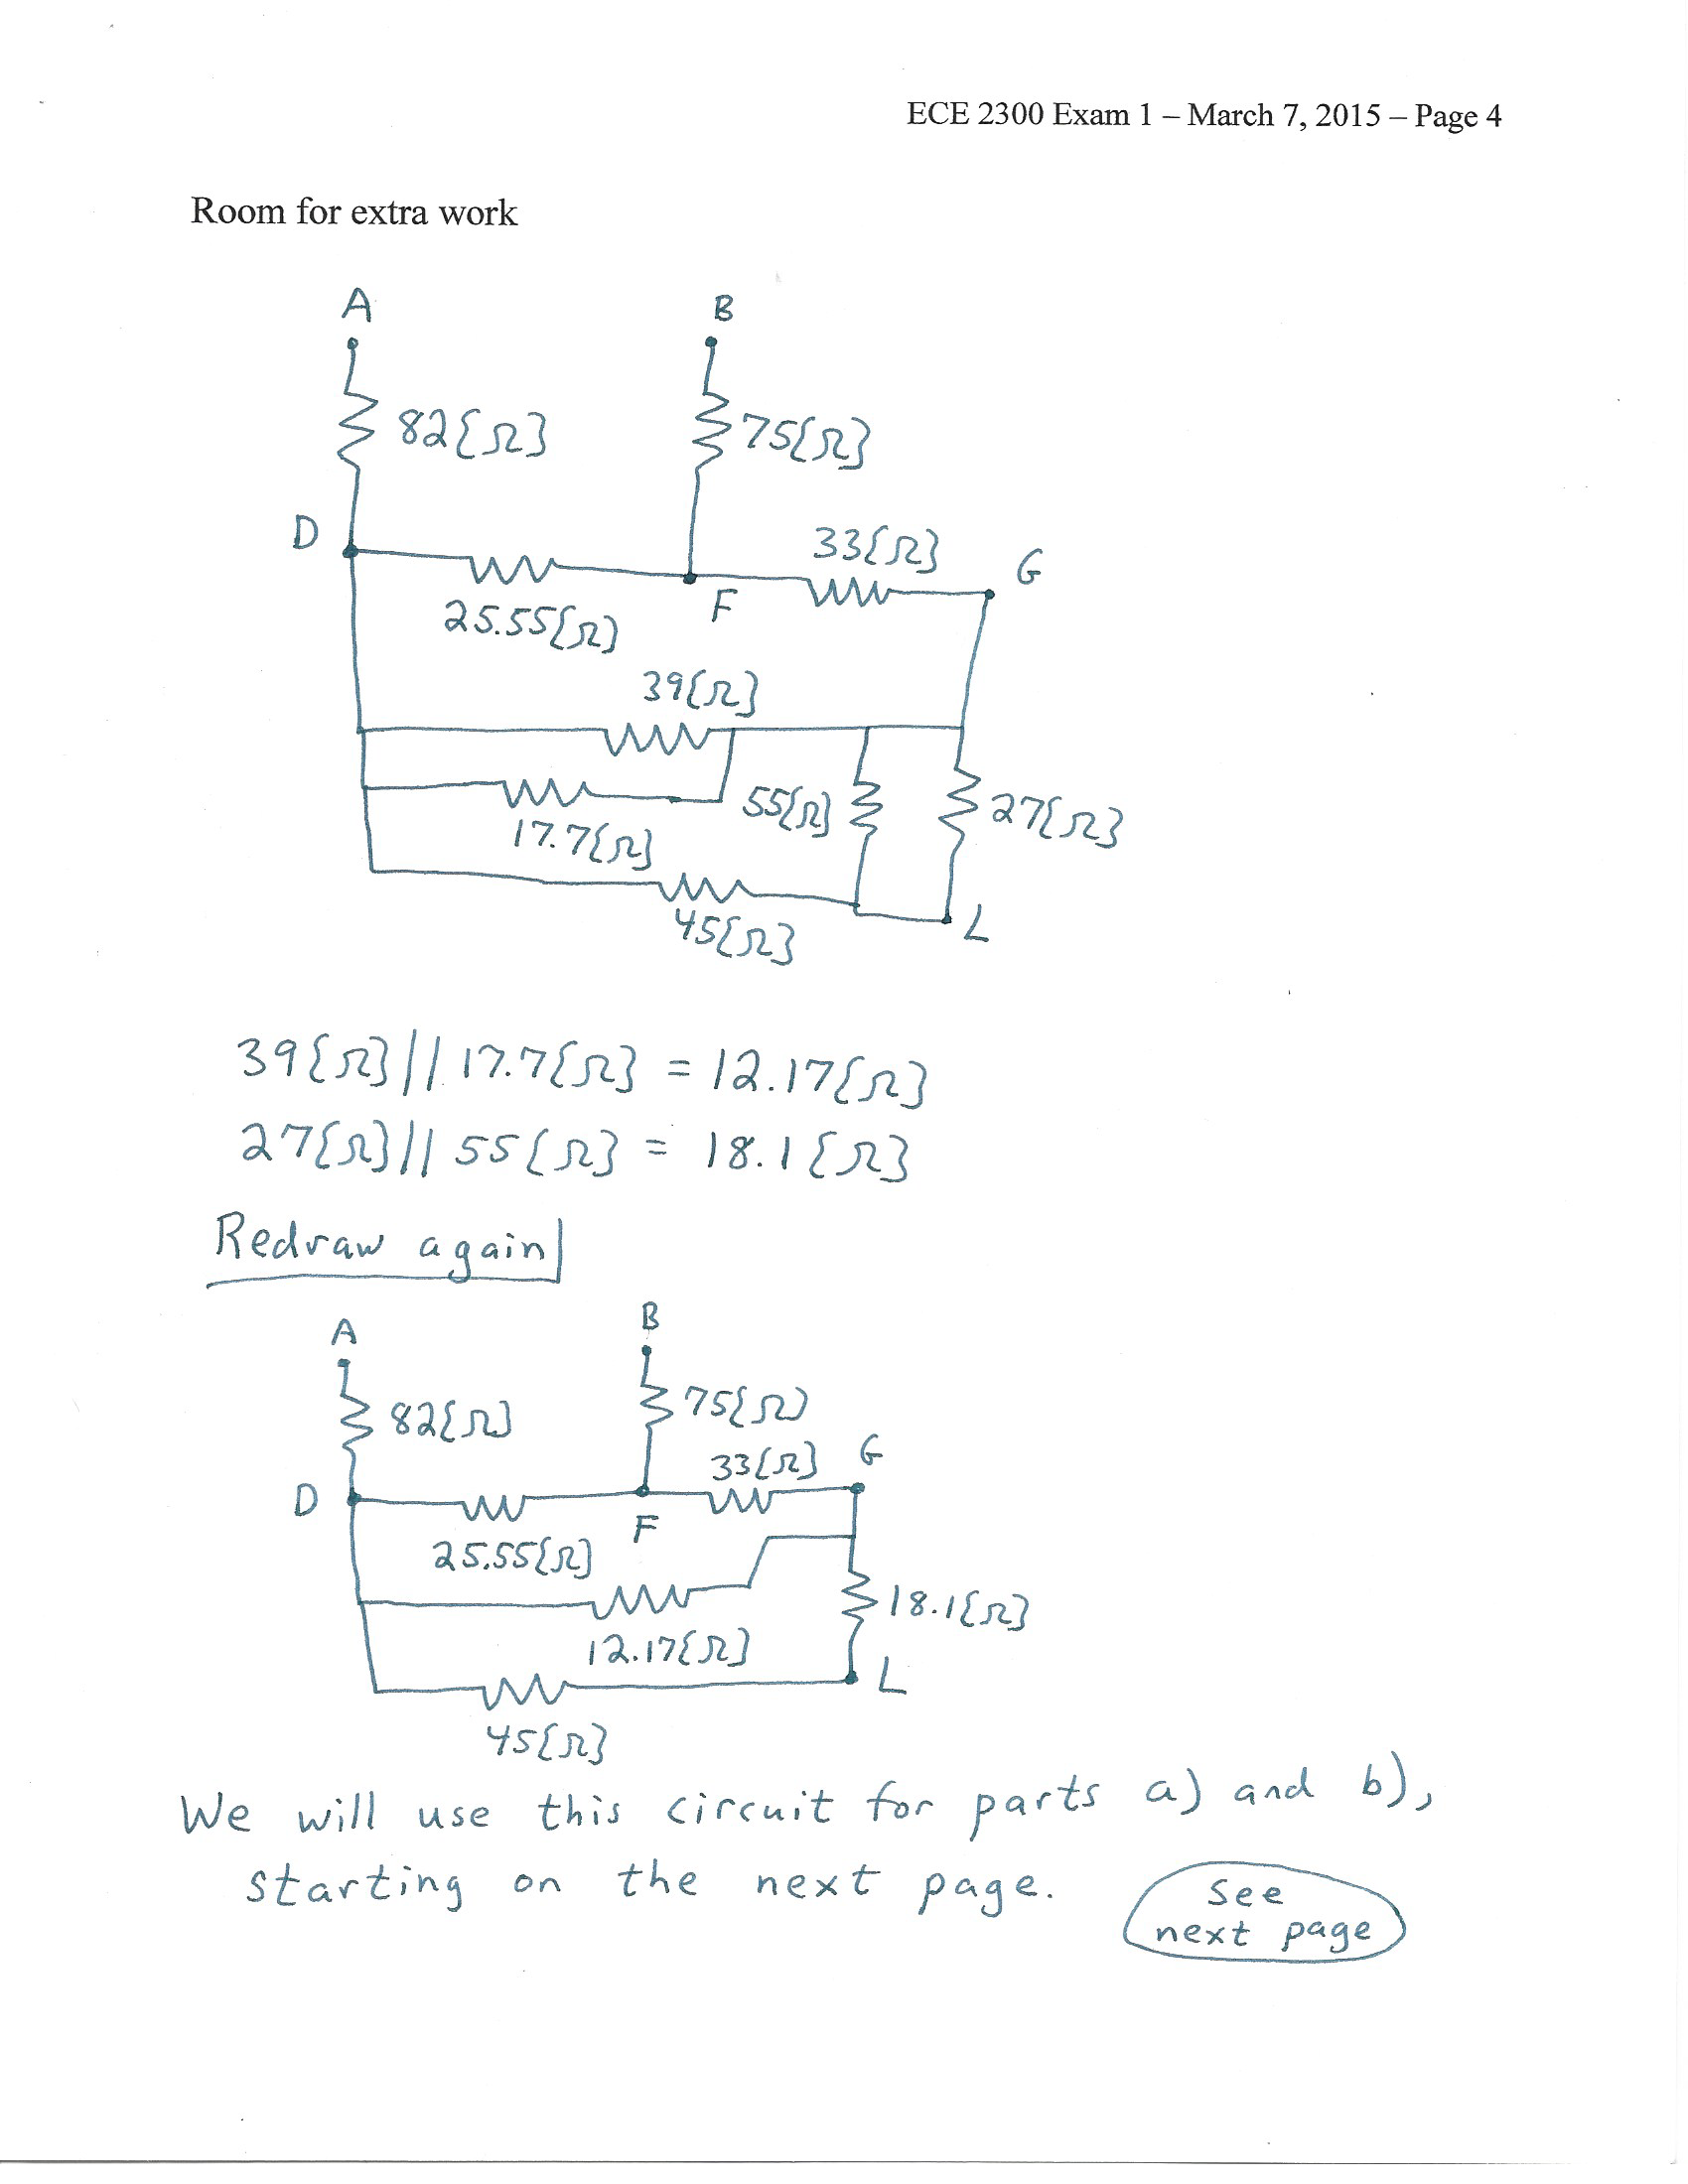 ECE 2300 Exam 1 – March 7, 2015 – Page 4
Room for extra work
A
B
82{Ω}
75{Ω}
D
33{Ω}
G
25.55{Ω}
F
39{Ω}
55{Ω}
27{Ω}
17.7{Ω}
45{Ω}
L
39{Ω}||17.7{Ω} = 12.17{Ω}
27{Ω}||55{Ω} = 18.1{Ω}
Redraw again
A
B
82{Ω}
75{Ω}
33{Ω}
G
D
F
25.55{Ω}
18.1{Ω}
12.17{Ω}
L
45{Ω}
We will use this circuit for parts a) and b),
starting on the next page.
See
next page